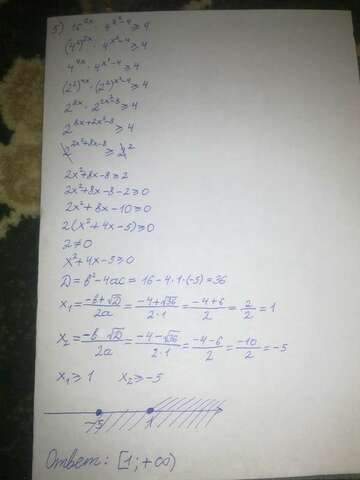 5) 16^{2x} · 4^{x²-4} ≥ 4
(4²)^{2x} · 4^{x²-4} ≥ 4
4^{4x} · 4^{x²-4} ≥ 4
(2²)^{4x} · (2²)^{x²-4} ≥ 4
2^{8x} · 2^{2x²-8} ≥ 4
2^{8x+2x²-8} ≥ 4
2^{2x²+8x-8} ≥ 2²
2x²+8x-8 ≥ 2
2x²+8x-8-2 ≥ 0
2x²+8x-10 ≥ 0
2(x²+4x-5) ≥ 0
2 ≠ 0
x²+4x-5 ≥ 0
D = b²-4ac = 16-4·1·(-5) = 36
x₁ = (-b+√D)/2a = (-4+√36)/(2·1) = (-4+6)/2 = 2/2 = 1
x₂ = (-b √D)/2a = (-4-√36)/(2·1) = (-4-6)/2 = -10/2 = -5
x₁ ≥ 1 x₂ ≥ -5
-5 1
Ответ: [1; +∞)